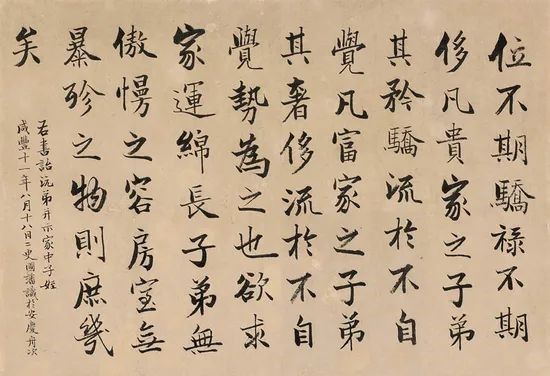 位不期驕祿不期
侈凡貴家之子弟
其矜驕流於不自
覺凡富家之子弟
其奢侈流於不自
覺勢為之也欲求
家運綿長子弟無
傲慢之容房室無
暴殄之物則庶幾
矣
右書詒沅弟并示家中子姪
咸豐十一年八月十八日 國藩識於安慶舟次